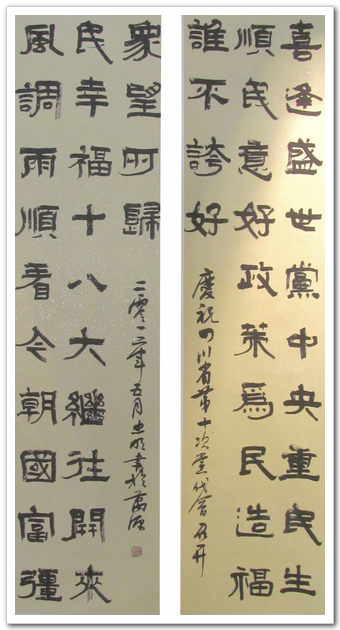 喜逢盛世黨中央重民生
順民意好政策爲民造福
誰不誇好
慶祝四川省第十次党代會召开
風調雨順看今朝國富彊
民幸福十八大繼往開來
衆望所歸
二零一二年五月明书於萬源